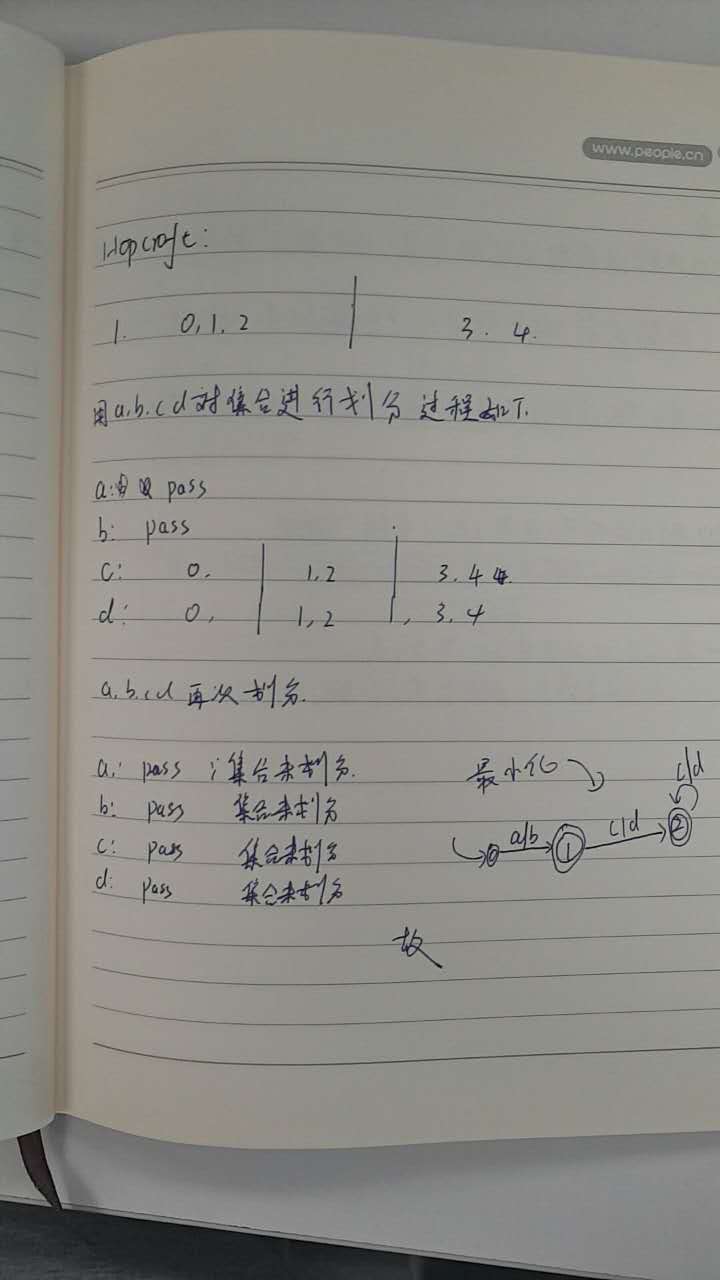 www.people.cn
Hopcroft:
1. 0,1,2 | 3. 4.
用a.b.c d对集合进行划分 过程如下.
a: pass
b: pass
c: 0. | 1,2 | 3.4
d: 0, | 1,2 |, 3,4
a.b.c.d 再次划分.
a: pass ;集合未划分.
b: pass 集合未划分
c: pass 集合未划分
d: pass 集合未划分
最小化
c/d
0 a/b 1 c/d 2
故